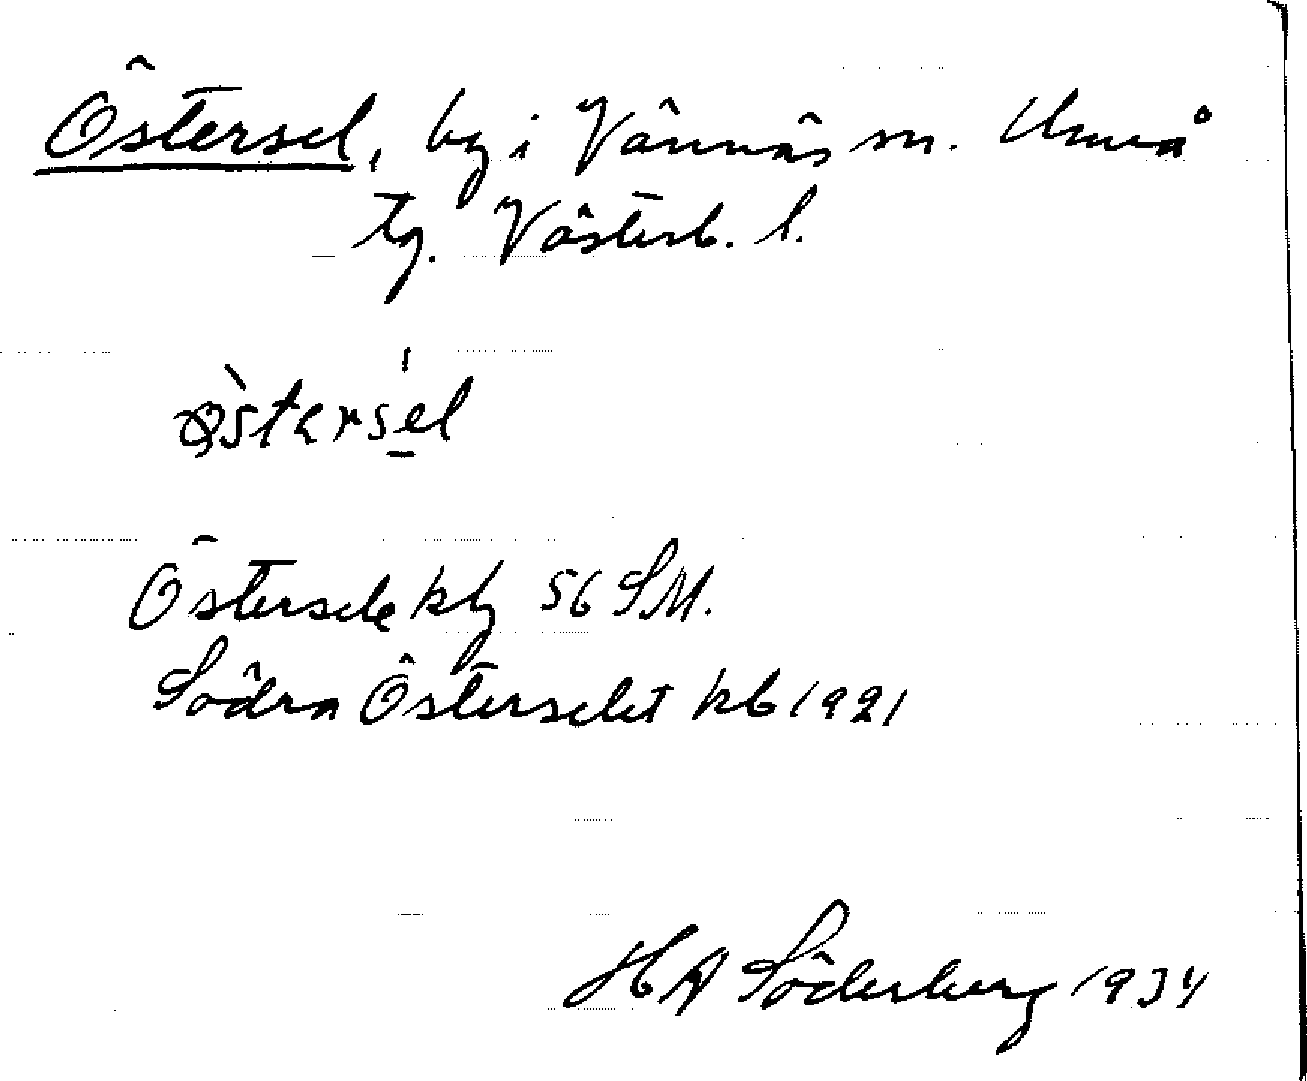 Östersel, by i Vännäs sn. Umeå
tg. Västerb. l.
östersel
Östersele kbg 56 SM.
Södra Österselet kb 1921
H A Söderberg 1934